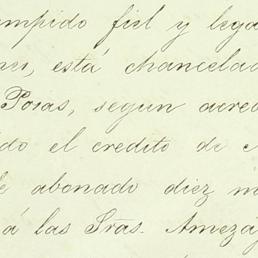 umpido fiel y lega
, está chancelad
Poias, segun acred
ido el credito de
e abonado diez m
á las Sras. Amezá